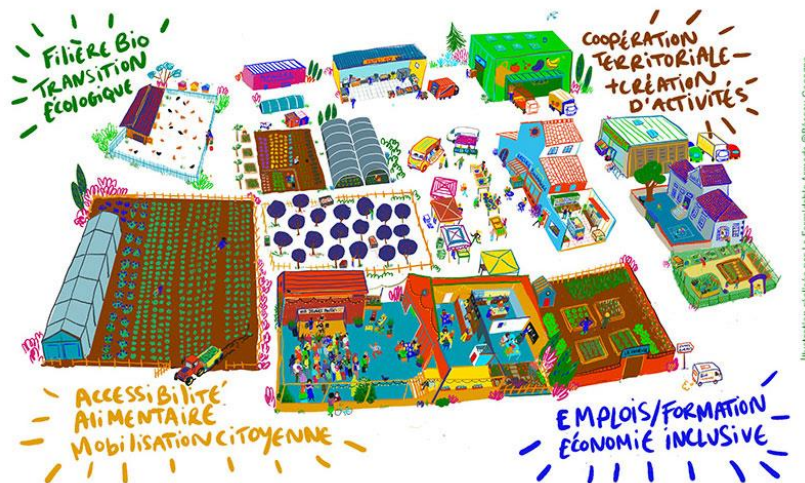 FILIÈRE BIO
TRANSITION
ÉCOLOGIQUE
COOPÉRATION
TERRITORIALE
+CRÉATION
D'ACTIVITÉS
ACCESSIBILITÉ
ALIMENTAIRE
MOBILISATION CITOYENNE
EMPLOIS/FORMATION
ÉCONOMIE INCLUSIVE